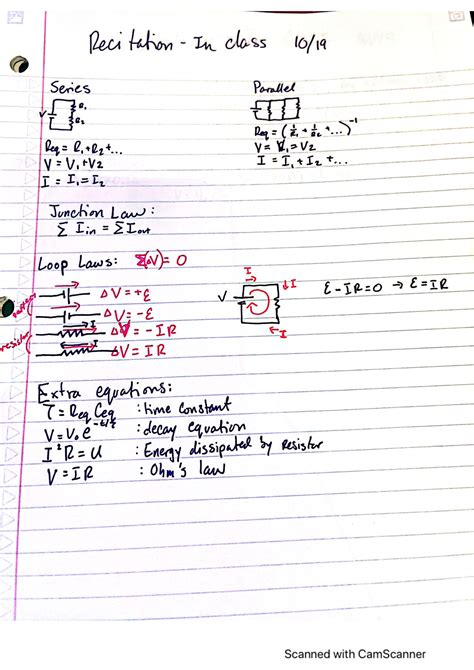 Recitation - In class 10/19
Series
R1
R2
V
Req = R1 + R2 + ...
V = V1 + V2
I = I1 = I2
Parallel
Req = (1/R1 + 1/R2 + ...)^-1
V = V1 = V2
I = I1 + I2 + ...
Junction Law:
Σ Iin = Σ Iout
Loop Laws: Σ(ΔV) = 0
battery
ΔV = +ε
ΔV = -ε
resistor
I
ΔV = -IR
I
ΔV = IR
I
V
I
I
ε - IR = 0 → ε = IR
Extra equations:
τ = Req Ceq : time constant
V = V0 e^-t/τ : decay equation
I²R = U : Energy dissipated by resistor
V = IR : Ohm's law
Scanned with CamScanner